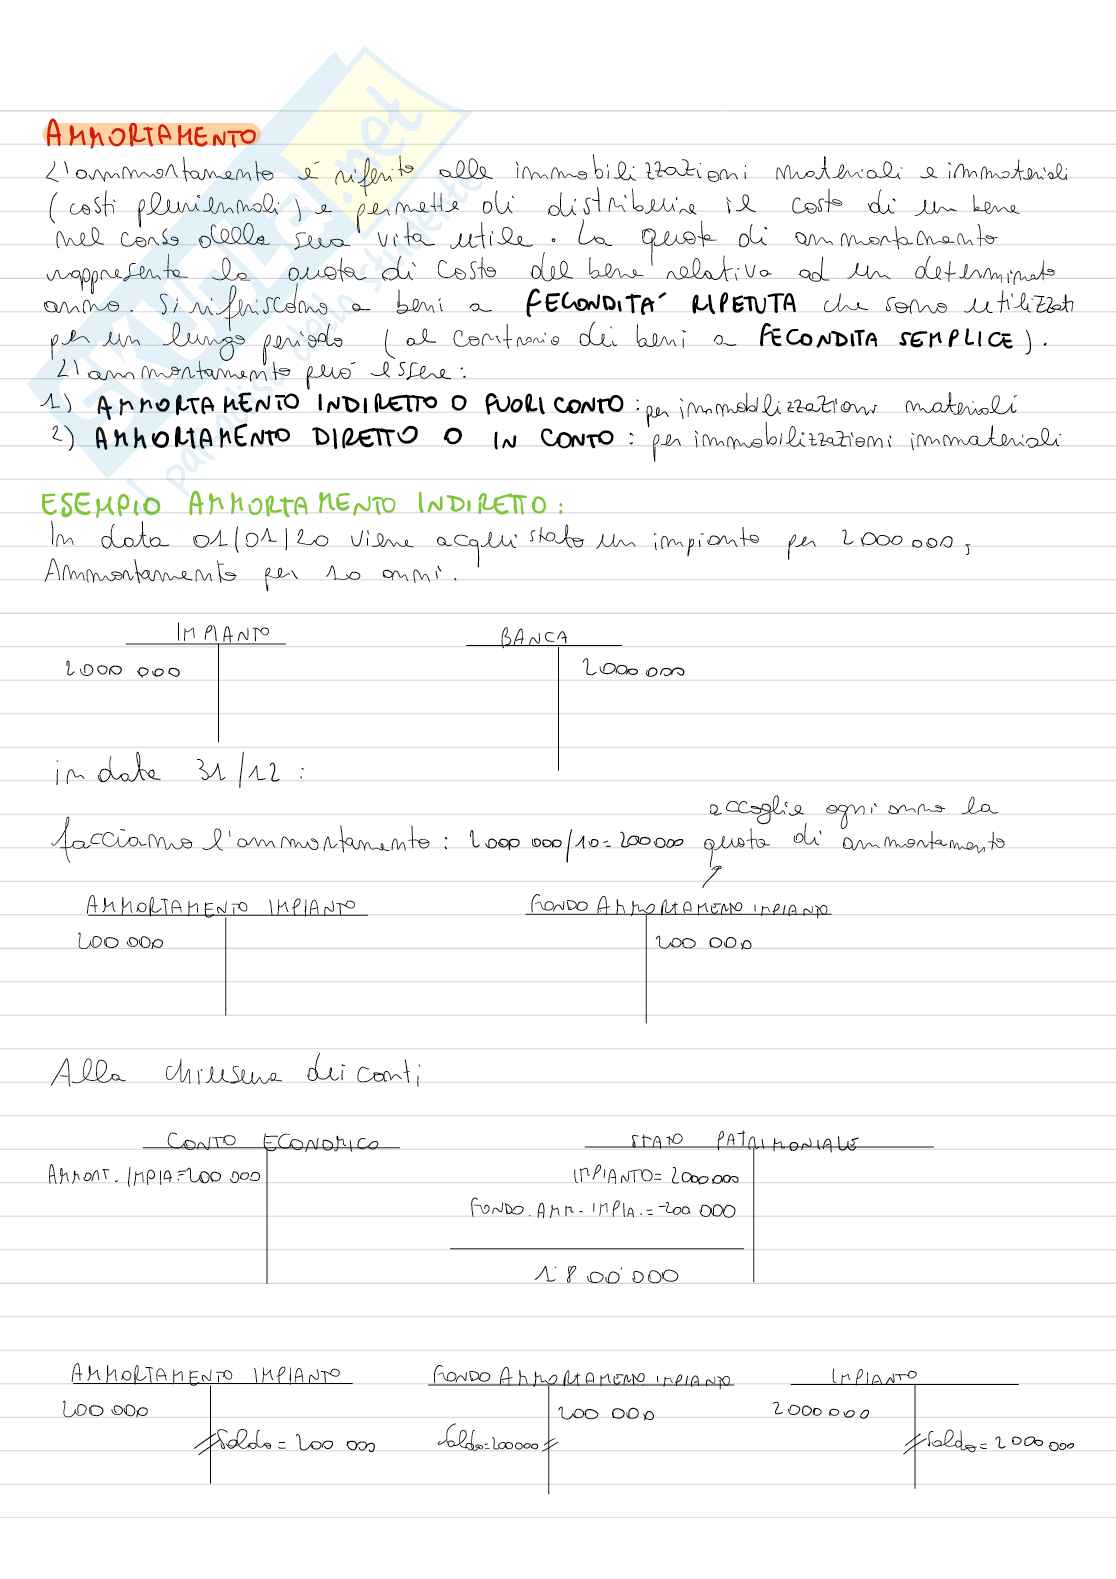 AMMORTAMENTO
L'ammortamento è riferito alle immobilizzazioni materiali e immateriali
(costi pluriennali) e permette di distribuire il costo di un bene
nel corso della sua vita utile. La quota di ammortamento
rappresenta la quota di costo del bene relativa ad un determinato
anno. Si riferiscono a beni a FECONDITA' RIPETUTA che sono utilizzati
per un lungo periodo (al contrario dei beni a FECONDITA SEMPLICE).
L'ammortamento può essere:
1) AMMORTAMENTO INDIRETTO O FUORI CONTO: per immobilizzazioni materiali
2) AMMORTAMENTO DIRETTO O IN CONTO: per immobilizzazioni immateriali
ESEMPIO AMMORTAMENTO INDIRETTO:
In data 01/01/20 viene acquistato un impianto per 2000000,
Ammortamento per 10 anni.
IMPIANTO BANCA
2000 000 2000000
in data 31/12:
accoglie ogni anno la
facciamo l'ammortamento: 2000 000/10=200000 quota di ammortamento
AMMORTAMENTO IMPIANTO FONDO AMMORTAMENTO IMPIANTO
200 000 200 000
Alla chiusura dei conti
CONTO ECONOMICO STATO PATRIMONIALE
AMMORT. IMPIA=200 000 IMPIANTO= 2000000
FONDO. AMM. IMPIA.=-200 000
1'800'000
AMMORTAMENTO IMPIANTO FONDO AMMORTAMENTO IMPIANTO IMPIANTO
200 000 200 000 2000000
Saldo= 200 000 Saldo=200000 Saldo= 2000000
SKUOLA.net